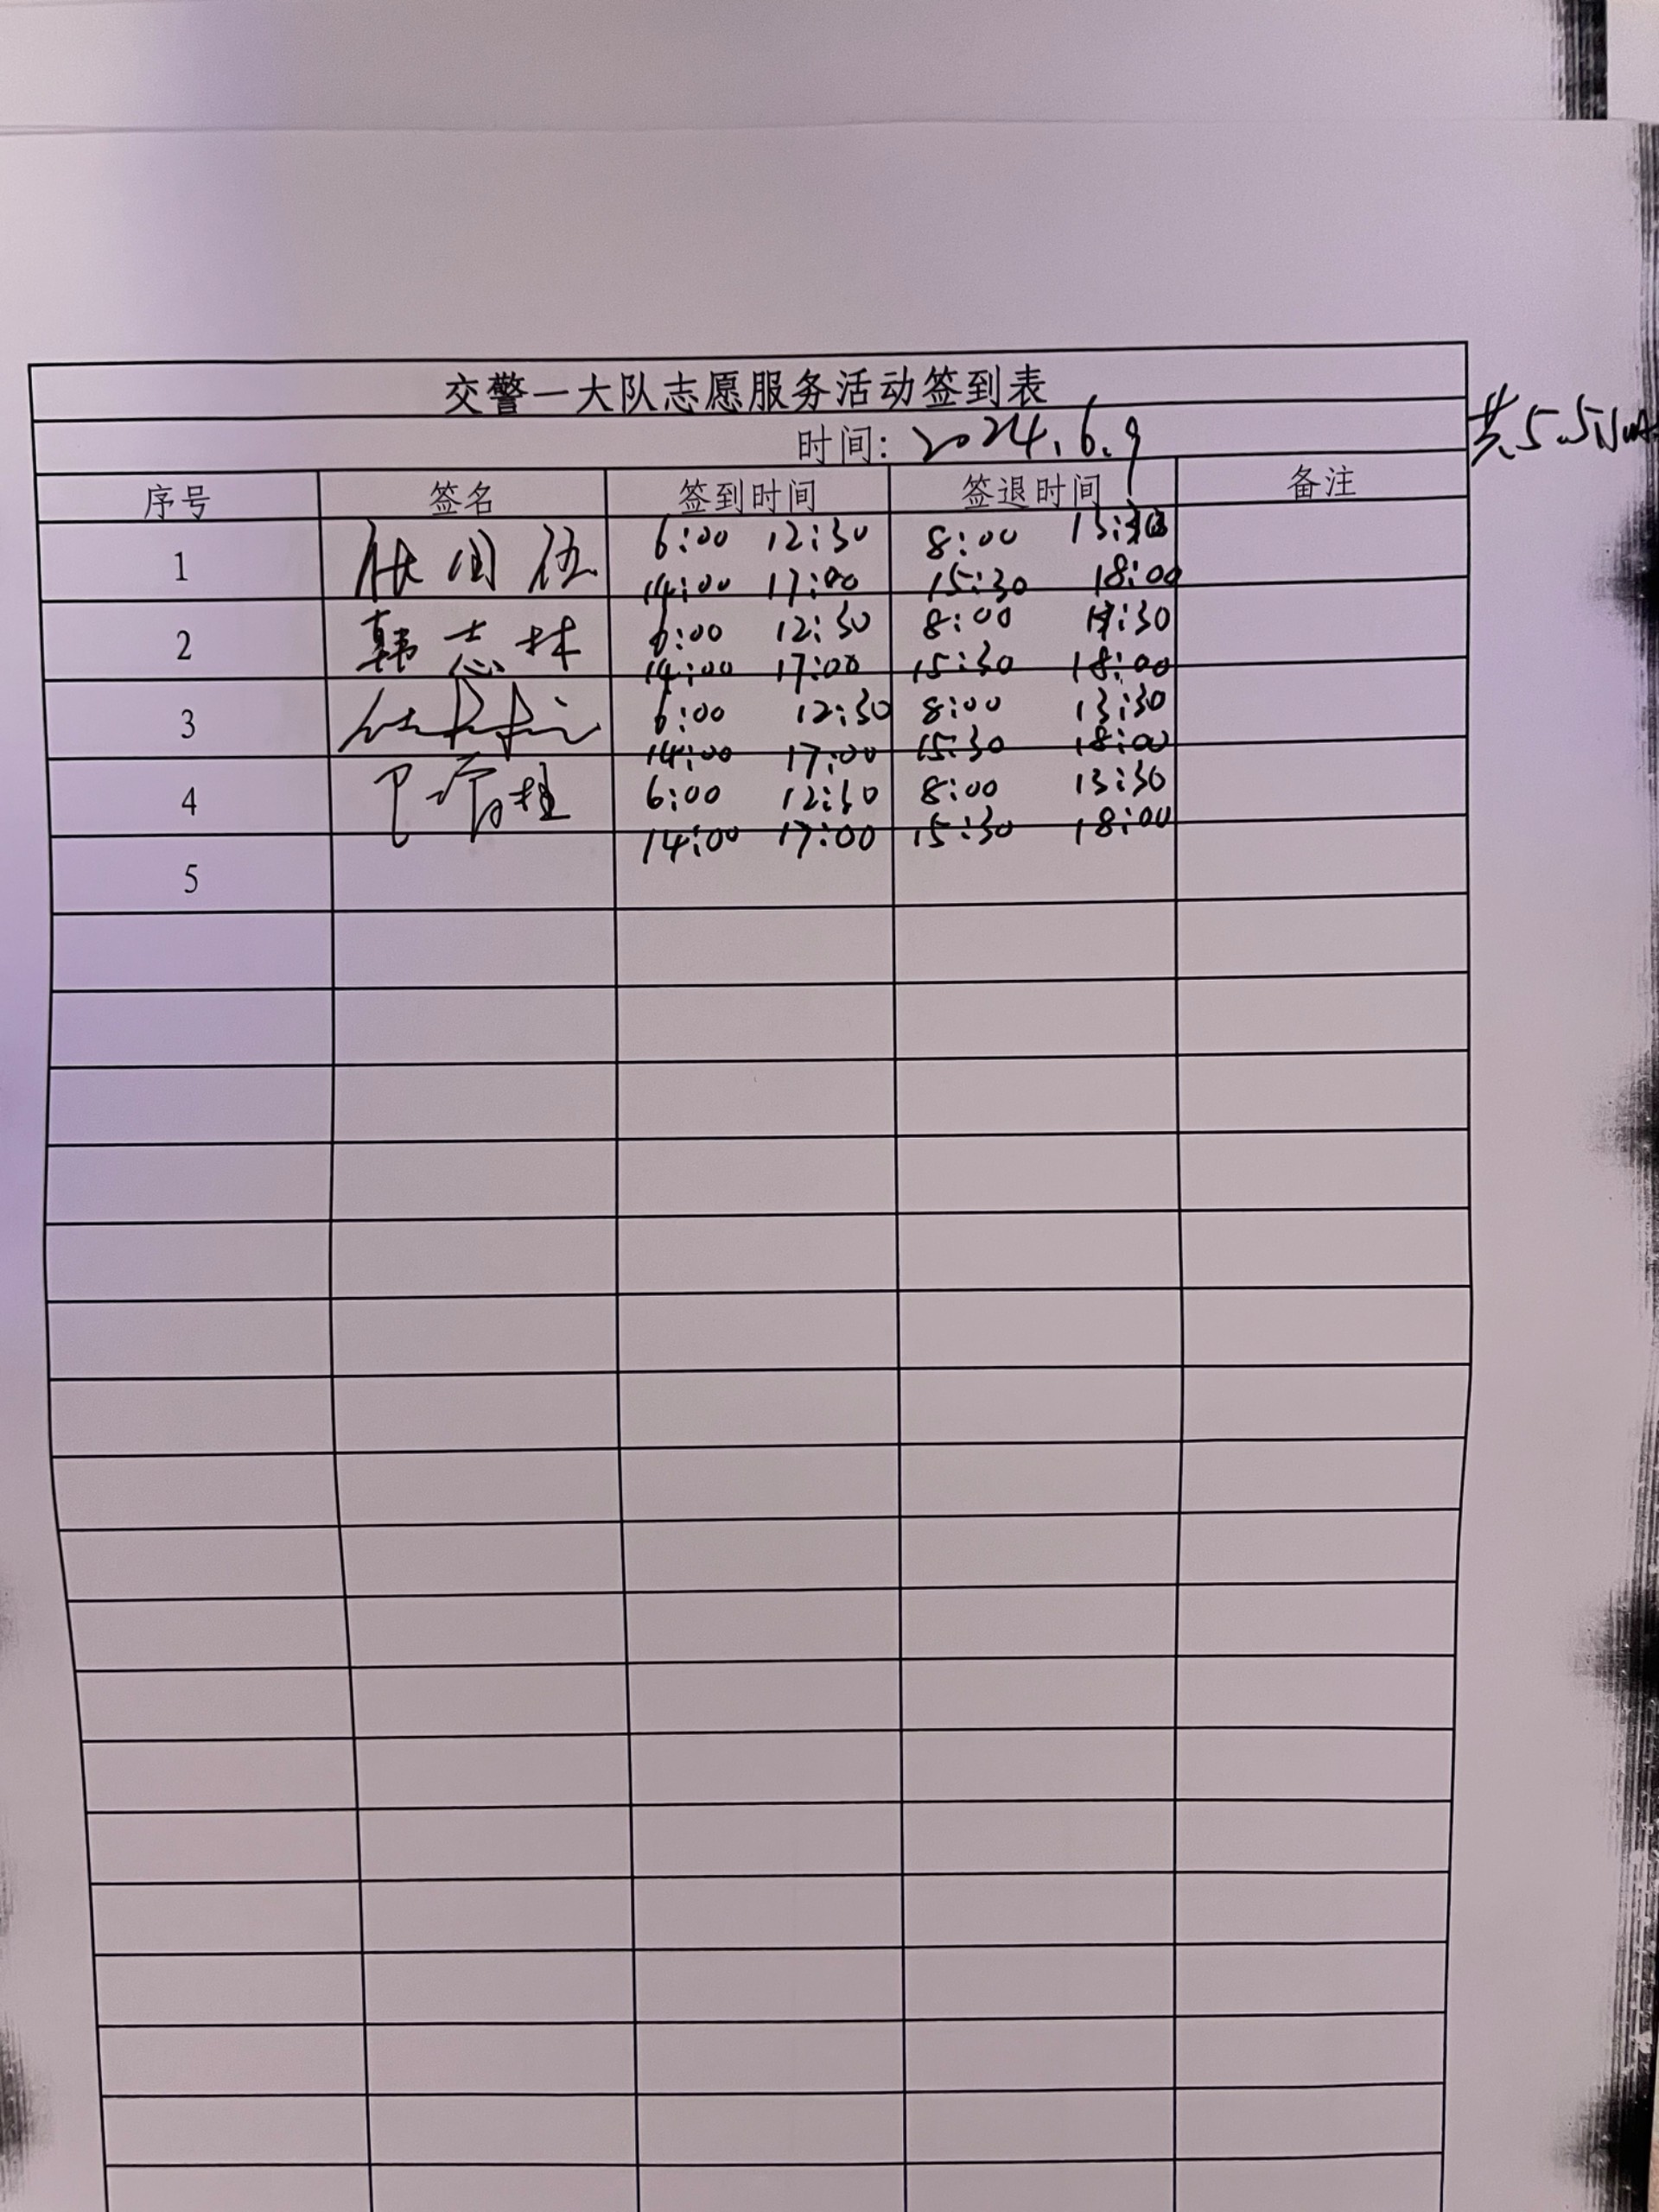 交警一大队志愿服务活动签到表
时间: 2024.6.9
共5.5小时
序号 签名 签到时间 签退时间 备注
1 6:00 12:30 8:00 13:30
14:00 17:00 15:30 18:00
2 韩志林 6:00 12:30 8:00 13:30
14:00 17:00 15:30 18:00
3 6:00 12:30 8:00 13:30
14:00 17:00 15:30 18:00
4 6:00 12:30 8:00 13:30
14:00 17:00 15:30 18:00
5